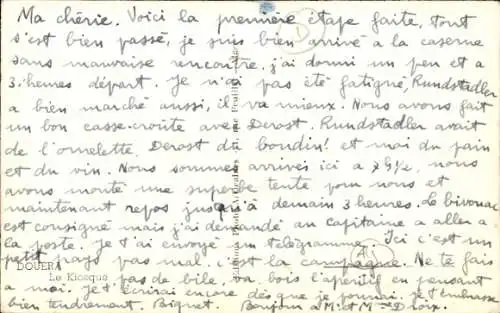 Ma chérie. Voici la première étape faite, tout
s'est bien passé, je suis bien arrivé a la caserne
sans mauvaise rencontre, j'ai dormi un peu et a
3 heures départ. Je n'ai pas été fatigué, Rundstadler
a bien marché aussi, il va mieux. Nous avons fait
un bon casse-croûte avec Derost. Rundstadler avait
de l'omelette, Derost du boudin! et moi du pain
et du vin. Nous sommes arrivés ici a 7h1/2, nous
avons monté une superbe tente pour nous et
maintenant repos jusqu'à demain 3 heures. Le bivouac
est consigné mais j'ai demandé au capitaine a aller a
la poste. Je t'ai envoyé un télégramme. Ici c'est un
petit pays pas mal. c'est la campagne. Ne te fais
DOUERA
Le Kiosque
pas de bile, va bois l'apéritif en pensant
a moi. Je t'écrirai encore dès que je pourrai. Je t'embrasse
bien tendrement. Bonjour a M. et Mme